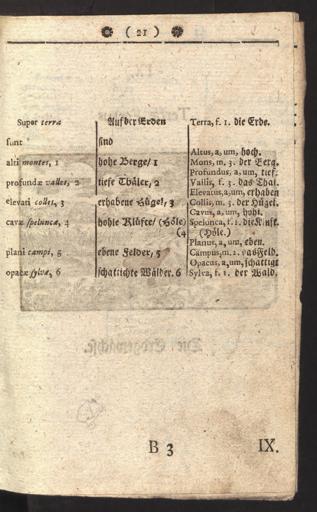 ( 21 )
Super terra
sunt
alti montes, 1
profundæ valles, 2
elevati colles, 3
cavæ speluncæ, 4
plani campi, 5
opacæ sylvæ, 6
Auf der Erden
sind
hohe Berge/ 1
tieffe Thäler, 2
erhabene Hügel, 3
hohle Klüfte/ (Höle)
(4
ebene Felder, 5
schattichte Wälder. 6
Terra, f. 1. die Erde.
Altus, a, um, hoch.
Mons, m. 3. der Berg.
Profundus, a, um, tief.
Vallis, f. 3. das Thal.
Elevatus, a, um, erhaben
Collis, m. 3. der Hügel.
Cavus, a, um, hohl.
Spelunca, f. 1. die Kluft.
(Höle.)
Planus, a, um, eben.
Campus, m. 2. das Feld.
Opacus, a, um, schattigt
Sylva, f. 1. der Wald.
B 3
IX.